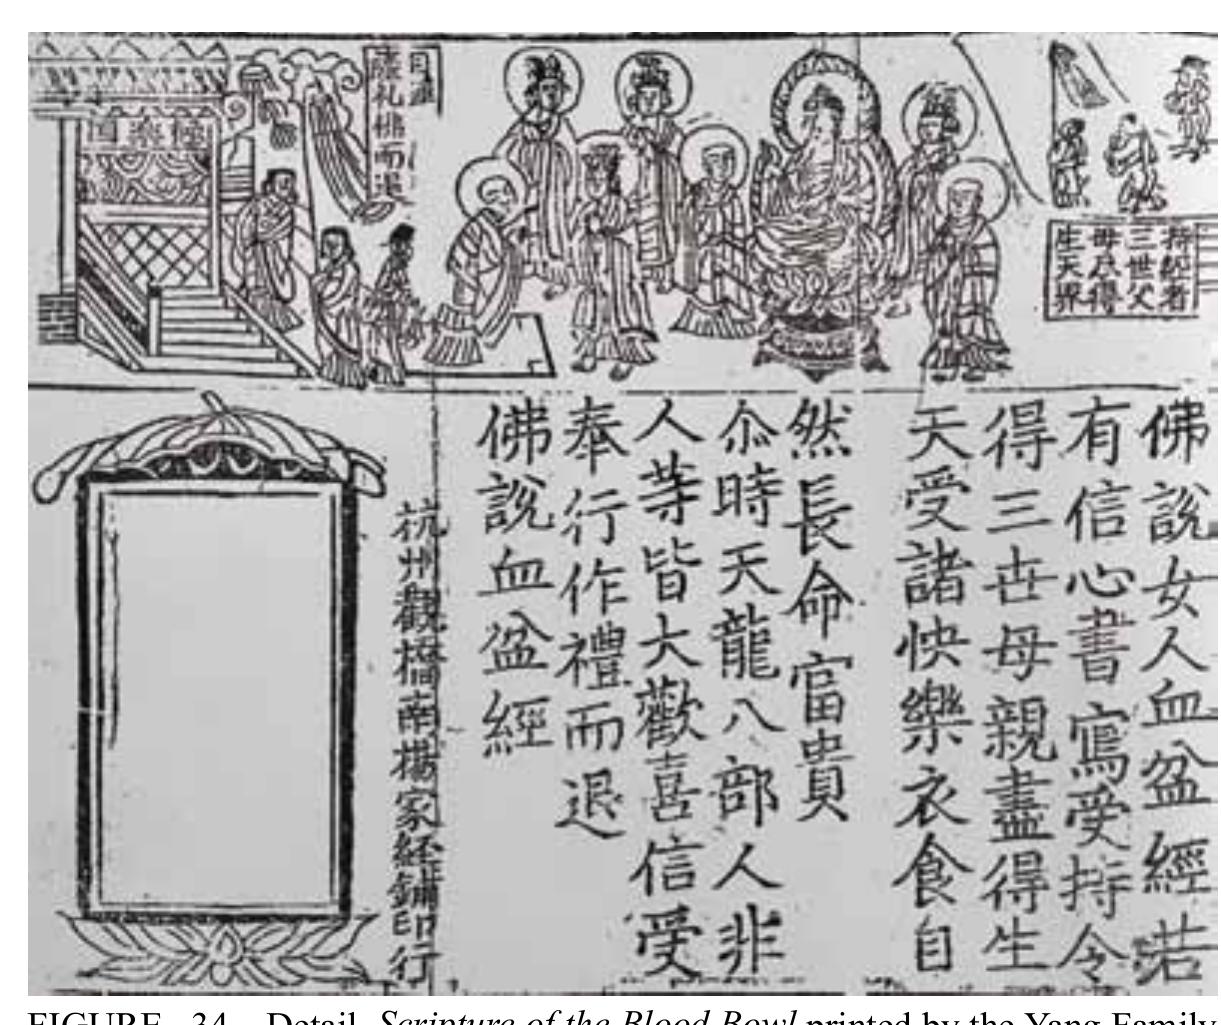 持經者
三世父
母尽得
生天界
目連
薩礼佛而退
極樂国
佛說女人血盆經若
有信心書寫受持令
得三世母親盡得生
天受諸快樂衣食自
然長命冨貴
尒時天龍八部人非
人等皆大歡喜信受
奉行作禮而退
佛說血盆經
杭州觀橋南楊家經鋪印行
FIGURE 34 Detail, Scripture of the Blood Bowl printed by the Yang Family